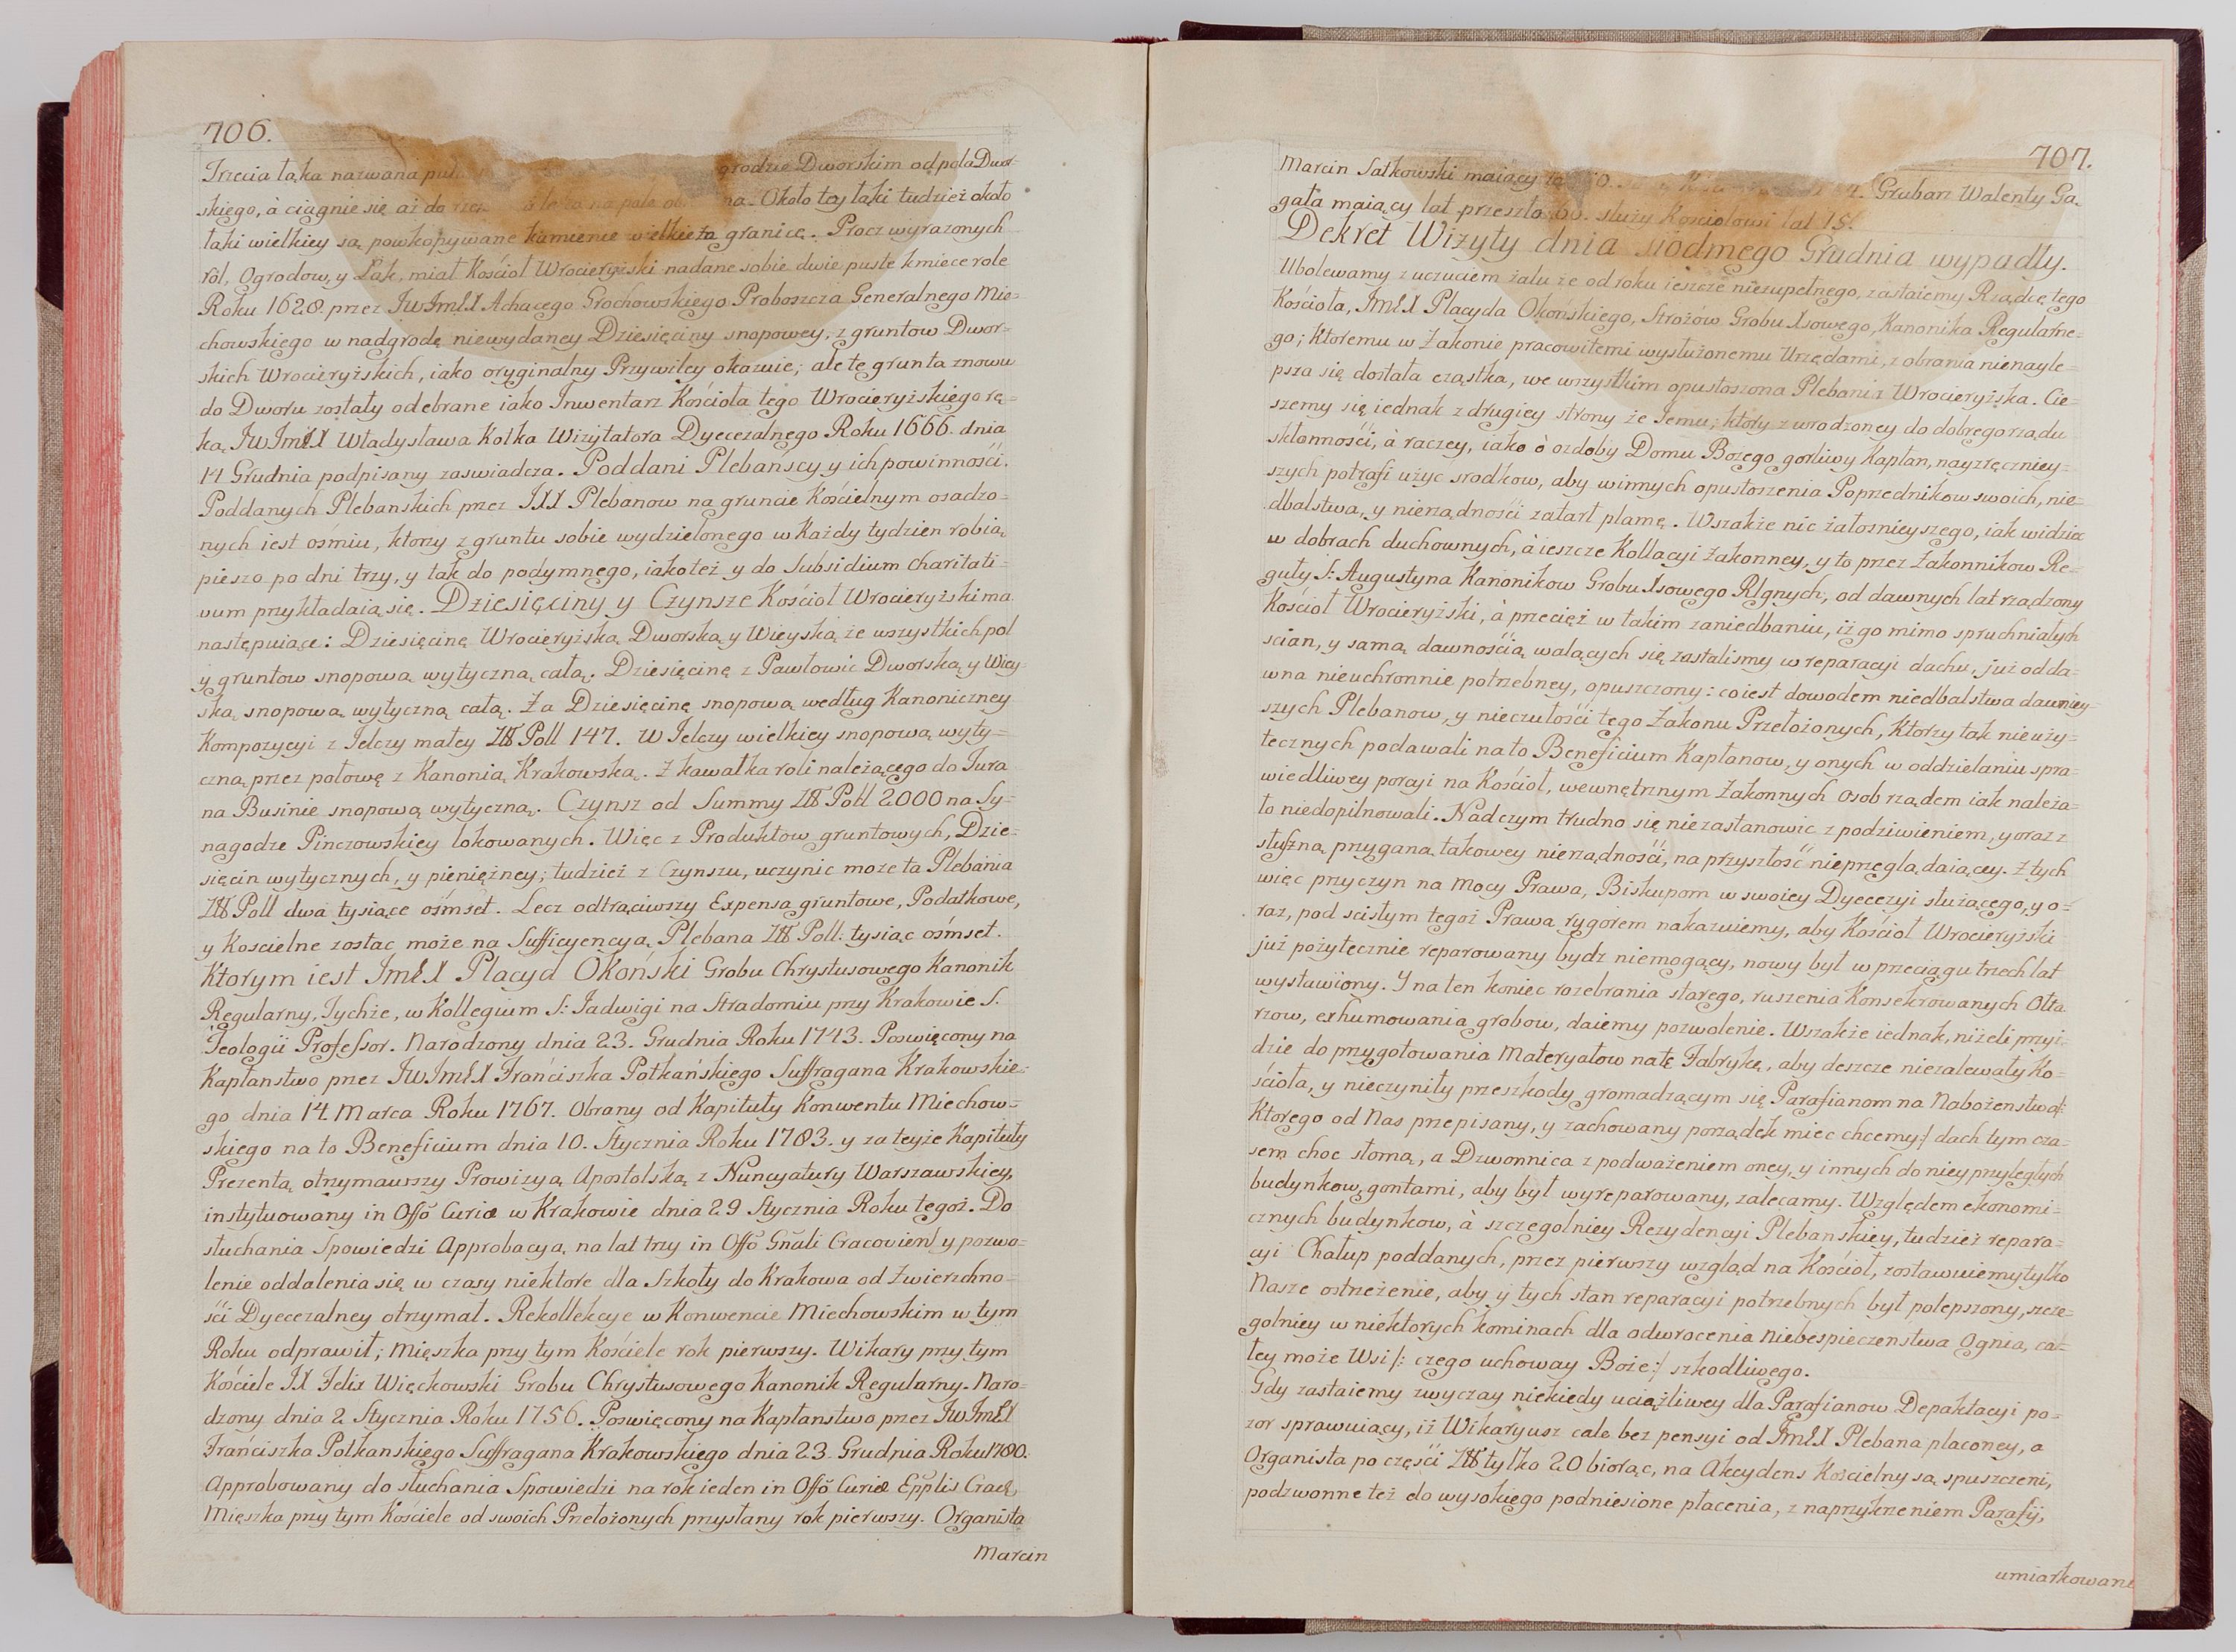 706.
Trzecia łąka nazwana grodzie Dworskim od pola Dwor-
skiego, à ciągnie się aż do na. Około tey łąki tudzież około
łąki wielkiey są powkopywane kamienie wielkie za granicę. Procz wyrazonych
ról, Ogrodow, y Łąk, miał Kościoł Wrocieryżski nadane sobie dwie puste kmiece role
Roku 1628. przez JWJmEX Achacego Grochowskiego Proboszcza Generalnego Mie=
chowskiego w nadgrodę niewydaney Dziesięciny snopowey, z gruntow Dwor=
skich Wrocieryżskich, iako oryginalny Przywiley okazuie; ale te grunta znowu
do Dworu zostały odebrane iako Inwentarz Kościoła tego Wrocieryżskiego rę=
ką JWJmEX Władysława Kołka Wizytatora Dyecezalnego Roku 1666. dnia
14 Grudnia podpisany zaswiadcza. Poddani Plebańscy y ich powinności.
Poddanych Plebanskich przez JXX Plebanow na gruncie Kościelnym osadzo=
nych iest ośmiu, ktorzy z gruntu sobie wydzielonego w Każdy tydzien robią
pieszo po dni trzy, y tak do podymnego, iako też y do Subsidium Charitati=
vum przykładaią się. Dziesięciny y Czynsze Kościoł Wrocieryżski ma
następuiące: Dziesięcinę Wrocieryżską Dworską y Wieyską ze wszystkich pol
y gruntow snopową wytyczną całą. Dziesięcinę z Pawłowic Dworską y Wiey=
ską snopową wytyczną całą. Za Dziesięcinę snopową według Kanoniczney
Kompozycyi z Jelczy małey Zł Poll 147. W Jelczy wielkiey snopową wyty=
czną przez połowę z Kanonią Krakowską. Z kawałka roli należącego do Jura
na Businie snopową wytyczną. Czynsz od Summy Zł Poll 2000 na Sy=
nagodze Pinczowskiey lokowanych. Więc z Produktow gruntowych, Dzie=
sięcin wytycznych, y pieniężney; tudzież z Czynszu, uczynic może ta Plebania
Zł Poll dwa tysiące ośmset. Lecz odtrąciwszy Expensa gruntowe, Podatkowe,
y Koscielne zostac może na Sufficyencyą Plebana Zł Poll: tysiąc ośmset.
Ktorym iest JmEX Placyd Okoński Grobu Chrystusowego Kanonik
Regularny, Tychże, w Kollegium S: Jadwigi na Stradomiu przy Krakowie S.
Teologii Professor. Narodzony dnia 23. Grudnia Roku 1743. Poswięcony na
Kapłanstwo przez JWJmEX Franciszka Potkańskiego Suffragana Krakowskie=
go dnia 14. Marca Roku 1767. Obrany od Kapituły Konwentu Miechow=
skiego na to Beneficium dnia 10. Stycznia Roku 1783. y za teyże Kapituły
Prezentą otrzymawszy Prowizyą Apostolską z Nuncyatury Warszawskiey,
instytuowany in Offõ Curiæ w Krakowie dnia 29 Stycznia Roku tegoż. Do
słuchania Spowiedzi Approbacyą na lat trzy in Offõ Gñali Cracovien y pozwo=
lenie oddalenia się w czasy niektore dla Szkoły do Krakowa od Zwierzchno=
ści Dyecezalney otrzymał. Rekollekcye w Konwencie Miechowskim w tym
Roku odprawił; Mięszka przy tym Kościele rok pierwszy. Wikary przy tym
Kościele JX Felix Więckowski Grobu Chrystusowego Kanonik Regularny. Naro=
dzony dnia 2 Stycznia Roku 1756. Poswięcony na Kapłanstwo przez JWJmEX
Franciszka Potkanskiego Suffragana Krakowskiego dnia 23. Grudnia Roku 1780.
Approbowany do słuchania Spowiedzi na rok ieden in Offõ Curiæ Epplis Crac,
Mięszka przy tym Kościele od swoich Przełożonych przysłany rok pierwszy. Organista
Marcin
707.
Marcin Satkowski maiący Grubarz Walenty Ga
gała maiący lat przeszło 60. służy Kościołowi lat 15.
Dekret Wizyty dnia siodmego Grudnia wypadły.
Ubolewamy z uczuciem żalu że od roku ieszcze niezupełnego, zastaiemy Rządcę tego
Kościoła, JmEX Placyda Okońskiego, Strożów Grobu Xsowego, Kanonika Regularne=
go; Ktoremu w Zakonie pracowitemi wysłużonemu Urzędami, z obrania nienayle=
psza się dostała cząstka, we wszystkim opustoszona Plebania Wrocieryżska. Cie=
szemy się iednak z drugiey strony że Jemu, ktory z wrodzoney do dobrego rządu
skłonności, à raczey, iako ò ozdoby Domu Bozego gorliwy Kapłan, nayzręczniey=
szych potrafi użyc srodkow, aby winnych opustoszenia Poprzednikow swoich, nie=
dbalstwa, y nierządności zatarł plamę. Wszakże nic żałosnieyszego, iak widziec
w dobrach duchownych, à ieszcze Kollacyi Zakonney, y to przez Zakonnikow Re=
guły S: Augustyna Kanonikow Grobu Xsowego Rlgnych, od dawnych lat rządzony
Kościoł Wrocieryżski, à przecięż w takim zaniedbaniu, iż go mimo spruchniałych
scian, y samą dawnością walących się zastalismy w reparacyi dachu, już od da=
wna nieuchronnie potrzebney, opuszczony: co iest dowodem niedbalstwa dawniey=
szych Plebanow, y nieczułości tego Zakonu Przełożonych, Ktorzy tak nieuży=
tecznych podawali na to Beneficium Kapłanow, y onych w oddzielaniu spra=
wiedliwey porcyi na Kościoł, wewnętrznym Zakonnych Osob rządem iak należa=
ło niedopilnowali. Nad czym trudno się niezastanowic z podziwieniem, y oraz z
słuszną przyganą takowey nierządności, na przyszłość nieprzeglądaiącey. Z tych
więc przyczyn na Mocy Prawa, Biskupom w swoiey Dyecezyi służącego, y o=
raz, pod scisłym tegoż Prawa rygorem nakazuiemy, aby Kościoł Wrocieryżski
już pożytecznie reparowany bydz niemogący, nowy był w przeciągu trzech lat
wystawiony. Y na ten koniec rozebrania starego, ruszenia Konsekrowanych Ołta
rzow, exhumowania grobow, daiemy pozwolenie. Wszakże iednak, niżeli przyi=
dzie do przygotowania Materyałow na tę Fabrykę, aby deszcze niezalewały Ko=
ścioła, y nieczyniły przeszkody gromadzącym się Parafianom na Nabożenstwo/:
Ktorego od Nas przepisany, y zachowany porządek miec chcemy:/ dach tym cza=
sem choc słomą, a Dzwonnica z podważeniem oney, y innych do niey przyległych
budynkow, gontami, aby był wyreparowany, zalecamy. Względem ekonomi=
cznych budynkow, à szczegolniey Rezydencyi Plebanskiey, tudzież repara=
cyi Chałup poddanych, przez pierwszy wzgląd na Kościoł, zostawuiemy tylko
Nasze ostrzeżenie, aby y tych stan reparacyi potrzebnych był polepszony, szcze=
golniey w niektorych kominach dla odwrocenia Niebespieczenstwa Ognia, ca=
łey może Wsi /: czego uchoway Boże:/ szkodliwego.
Gdy zastaiemy zwyczay niekiedy uciążliwey dla Parafianow Depaktacyi po=
zor sprawuiący, iż Wikaryusz cale bez pensyi od JmEX Plebana placoney, a
Organista po części Zł tylko 20 biorąc, na Akcydens Kościelny są spuszczeni,
podzwonne też do wysokiego podniesione płacenia, z naprzykrzeniem Parafij,
umiarkowane